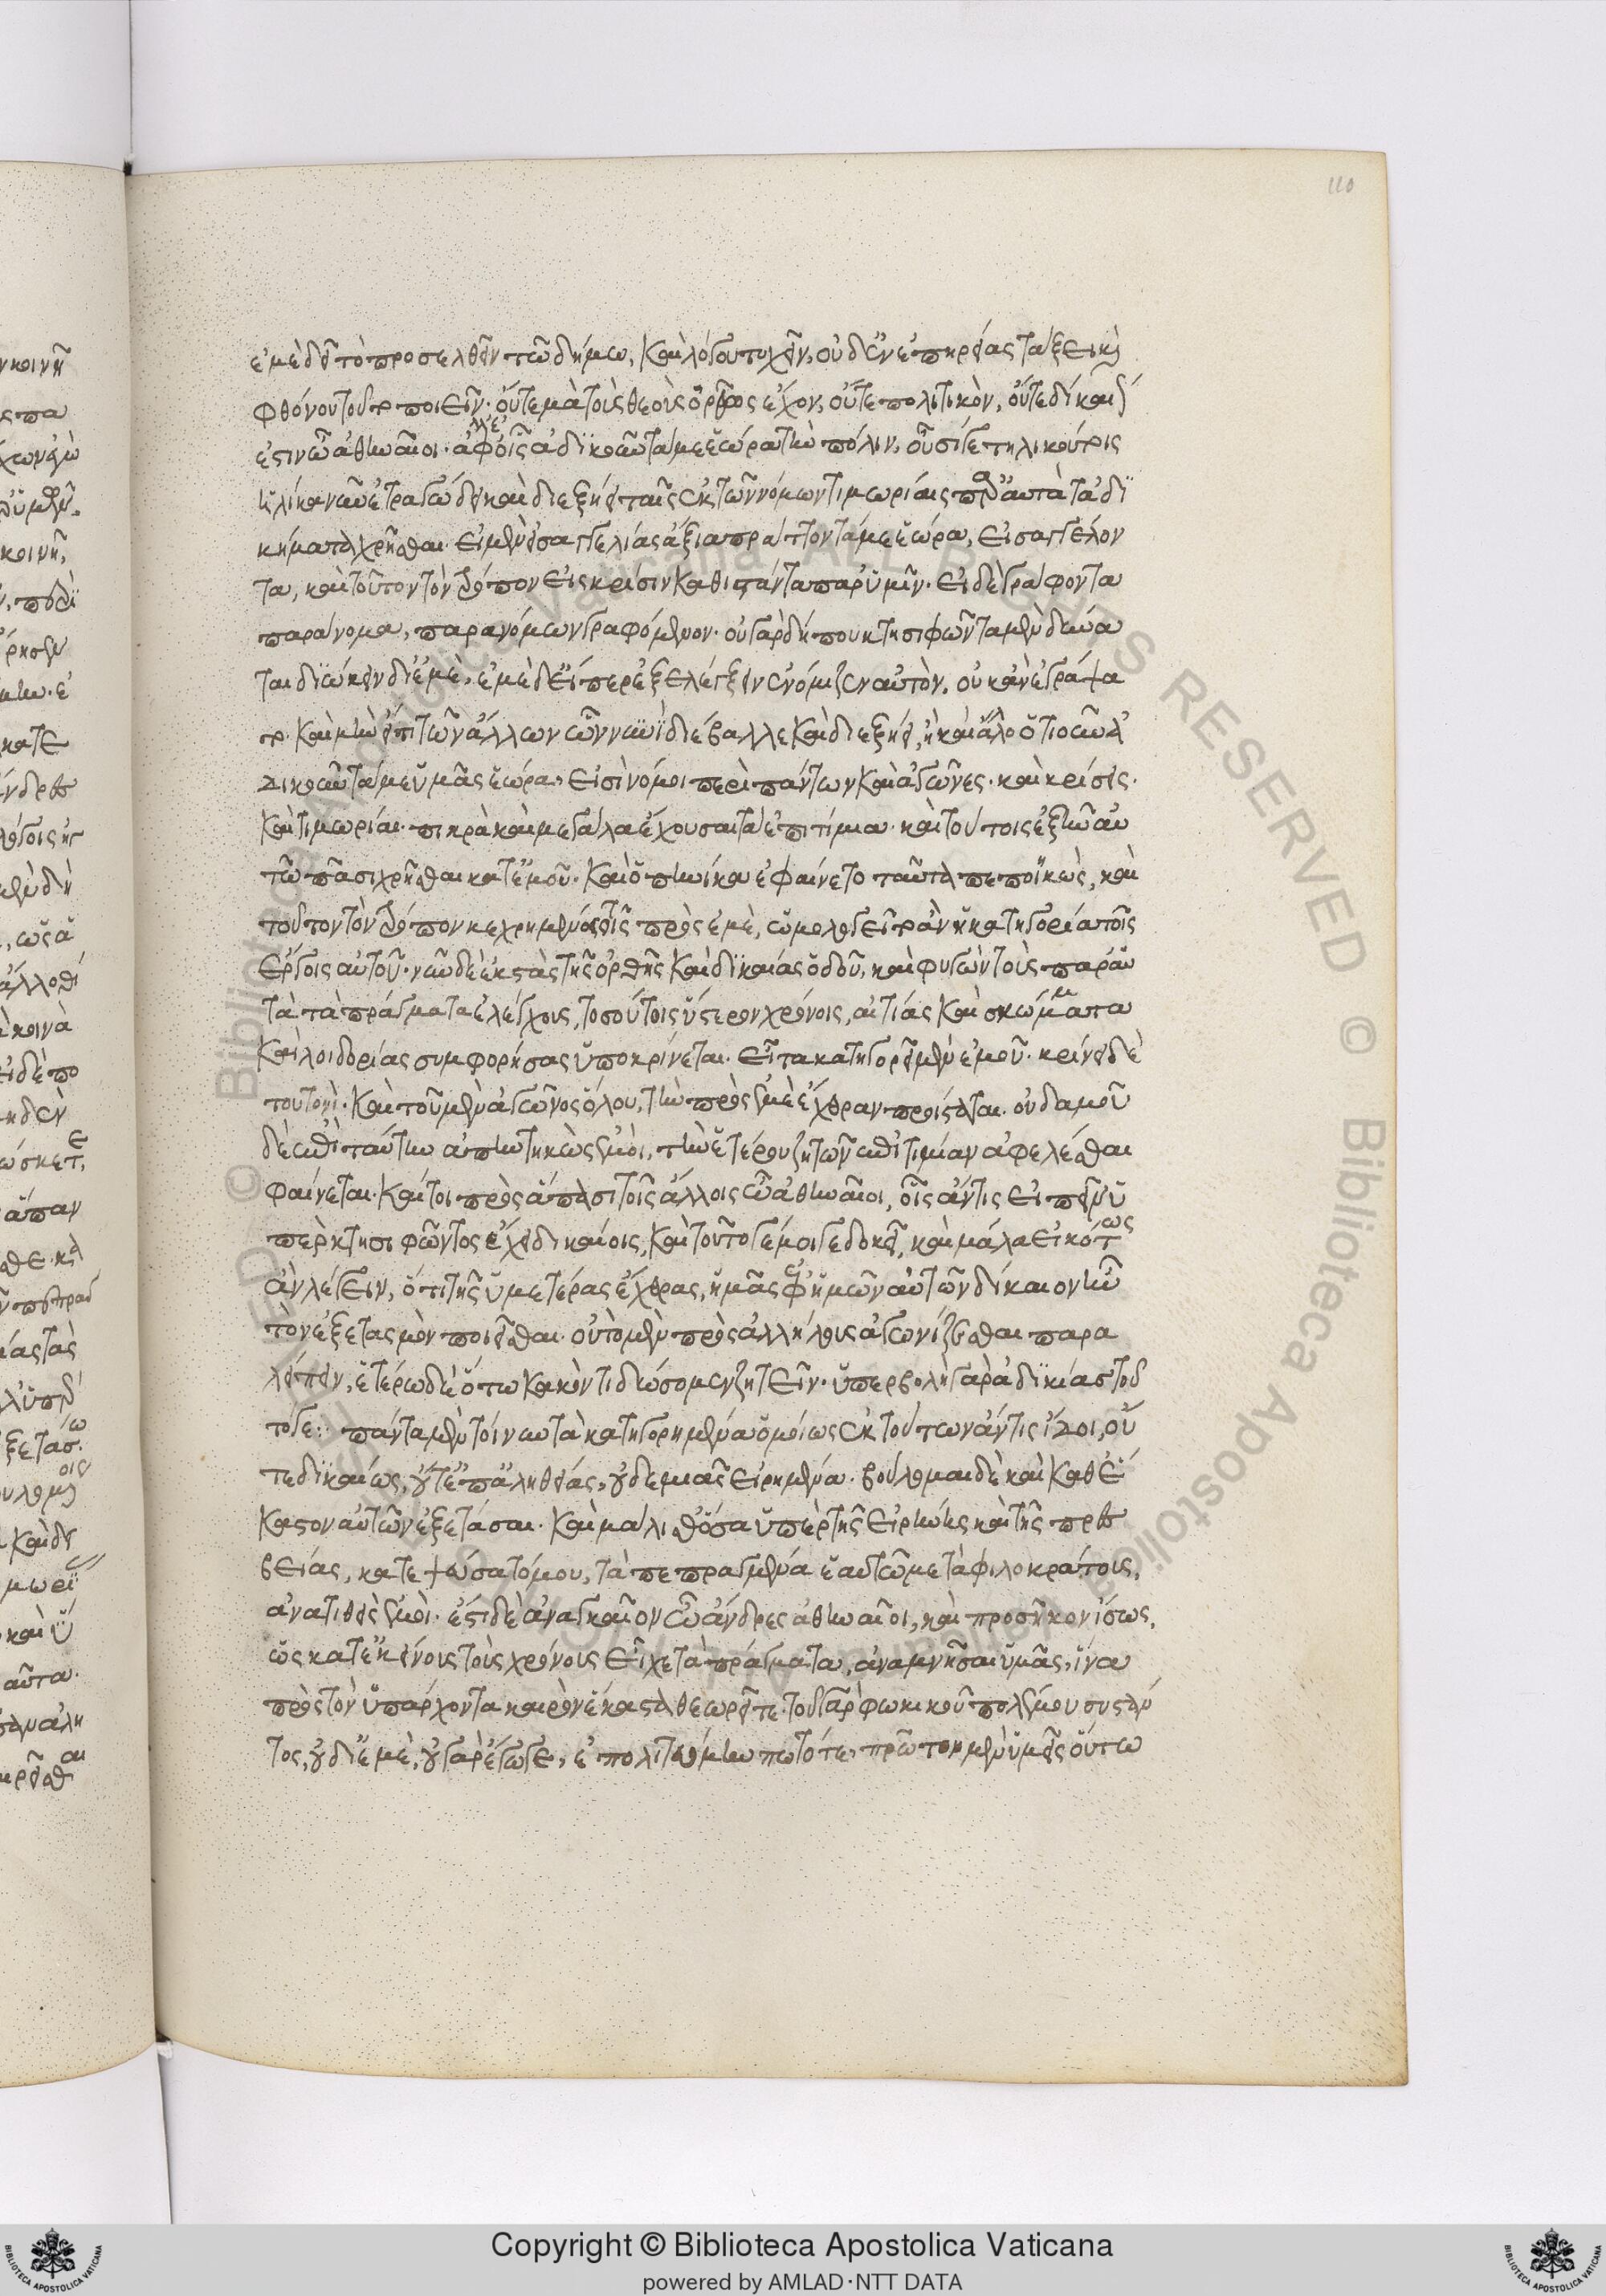 110
ἐμὲ δεῖ τὸ προσελθεῖν τῶ δήμω, καὶ λόγου τυχεῖν, οὐδ' ἐν ἐπηρείας τάξει καὶ
φθόνου τοῦτο ποιεῖν· οὔτε μὰ τοὺς θεοὺς ὀρθῶς ἔχον, οὔτε πολιτικὸν, οὔτε δίκαιόν
ἐστιν ὦ ἀθηναῖοι· ἀλλ' ἐφ' οἷς ἀδικοῦντά με ἑώρα τὴν πόλιν, οὖσί γε τηλικούτοις
ἡλίκα νῦν ἐτραγώδει καὶ διεξήει ταῖς ἐκ τῶν νόμων τιμωρίαις παρ' αὐτὰ τἀδι
κήματα χρῆσθαι· εἰ μὲν εἰσαγγελίας ἄξια πράττοντά με ἑώρα, εἰσαγγέλον
τα, καὶ τοῦτον τὸν τρόπον εἰς κρίσιν καθιστάντα παρ' ὑμῖν· εἰ δὲ γράφοντα
παράνομα, παρανόμων γραφόμενον· οὐ γὰρ δήπου κτησιφῶντα μὲν δύνα
ται διώκειν δι' ἐμὲ, ἐμὲ δ' εἴπερ ἐξελέγξειν ἐνόμιζεν αὐτὸν, οὐκ ἂν ἐγράψα
το· καὶ μὴν εἴ τι τῶν ἄλλων ὧν νυνὶ διέβαλλε καὶ διεξήει, ἢ καὶ ἄλλο ὁτιοῦν ἀ
δικοῦντά με ὑμᾶς ἑώρα, εἰσὶ νόμοι περὶ πάντων καὶ ἀγῶνες· καὶ κρίσεις·
καὶ τιμωρίαι· πικρὰ καὶ μεγάλα ἔχουσαι τἀπιτίμια· καὶ τούτοις ἐξῆν αὐ
τῶ πᾶσι χρῆσθαι κατ' ἐμοῦ· καὶ ὁπηνίκα ἐφαίνετο ταῦτα πεποιηκὼς, καὶ
τοῦτον τὸν τρόπον κεχρημένος τοῖς πρὸς ἐμὲ, ὡμολογεῖτο ἂν ἡ κατηγορία τοῖς
ἔργοις αὐτοῦ· νῦν δὲ ἐκστὰς τῆς ὀρθῆς καὶ δικαίας ὁδοῦ, καὶ φυγὼν τοὺς παρ' αὐ
τὰ τὰ πράγματα ἐλέγχους, τοσούτοις ὕστερον χρόνοις, αἰτίας καὶ σκώμματα
καὶ λοιδορίας συμφορήσας ὑποκρίνεται· εἶτα κατηγορεῖ μὲν ἐμοῦ· κρίνει δὲ
τουτονὶ· καὶ τοῦ μὲν ἀγῶνος ὅλου, τὴν πρὸς ἐμὲ ἔχθραν προΐσταται· οὐδαμοῦ
δὲ ἐπὶ ταύτην ἀπηντηκὼς ἐμοὶ, τὴν ἑτέρου ζητῶν ἐπιτιμίαν ἀφελέσθαι
φαίνεται· καίτοι πρὸς ἅπασι τοῖς ἄλλοις ὦ ἀθηναῖοι, οἷς ἄν τις εἰπεῖν ὑ
πὲρ κτησιφῶντος ἔχει δικαίοις, καὶ τοῦτό γ' ἐμοίγε δοκεῖ, καὶ μάλα εἰκότως
ἂν λέγειν, ὅτι τῆς ὑμετέρας ἔχθρας, ἡμᾶς ἐφ' ἡμῶν αὐτῶν δίκαιον ἦν
τὸν ἐξετασμὸν ποιεῖσθαι· οὐ τὸ μὲν πρὸς ἀλλήλους ἀγωνίζεσθαι παρα
λείπειν, ἑτέρω δὲ ὅτω κακόν τι δώσομεν ζητεῖν· ὑπερβολὴ γὰρ ἀδικίας τοῦ
τό γε: πάντα μὲν τοίνυν τὰ κατηγορημένα ὁμοίως ἐκ τούτων ἄν τις ἴδοι, οὔ
τε δικαίως, οὔτ' ἐπ' ἀληθείας, οὐδεμιᾶς εἰρημένα· βούλομαι δὲ καὶ καθ' ἕ
καστον αὐτῶν ἐξετάσαι· καὶ μάλισθ' ὅσα ὑπὲρ τῆς εἰρήνης καὶ τῆς πρεσ
βείας, κατεψεύσατό μου, τὰ πεπραγμένα ἑαυτῶ μετὰ φιλοκράτους,
ἀνατιθεὶς ἐμοὶ· ἔστι δὲ ἀναγκαῖον ὦ ἄνδρες ἀθηναῖοι, καὶ προσῆκον ἴσως,
ὡς κατ' ἐκείνους τοὺς χρόνους εἶχε τὰ πράγματα, ἀναμνῆσαι ὑμᾶς, ἵνα
πρὸς τὸν ὑπάρχοντα καιρὸν ἕκαστα θεωρεῖτε· τοῦ γὰρ φωκικοῦ πολέμου συστάν
τος, οὐ δι' ἐμὲ, οὐ γὰρ ἔγωγε, ἐπολιτευόμην πω τότε, πρῶτον μὲν ὑμεῖς οὕτω